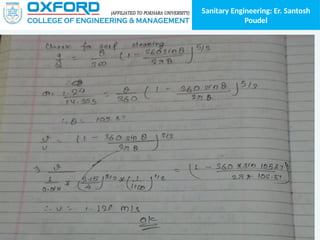 OXFORD (AFFILIATED TO POKHARA UNIVERSITY)
COLLEGE OF ENGINEERING & MANAGEMENT
Sanitary Engineering: Er. Santosh
Poudel
Check for self cleaning
q/Q = θ/360 (1 - 360 sinθ / 2πθ)^5/3
or, 1.24 / 14.555 = θ/360 (1 - 360 sinθ / 2πθ)^5/3
∴ θ = 105.5°
v/V = (1 - 360 sinθ / 2πθ)^2/3
∴ v = 1.128 m/s
OK